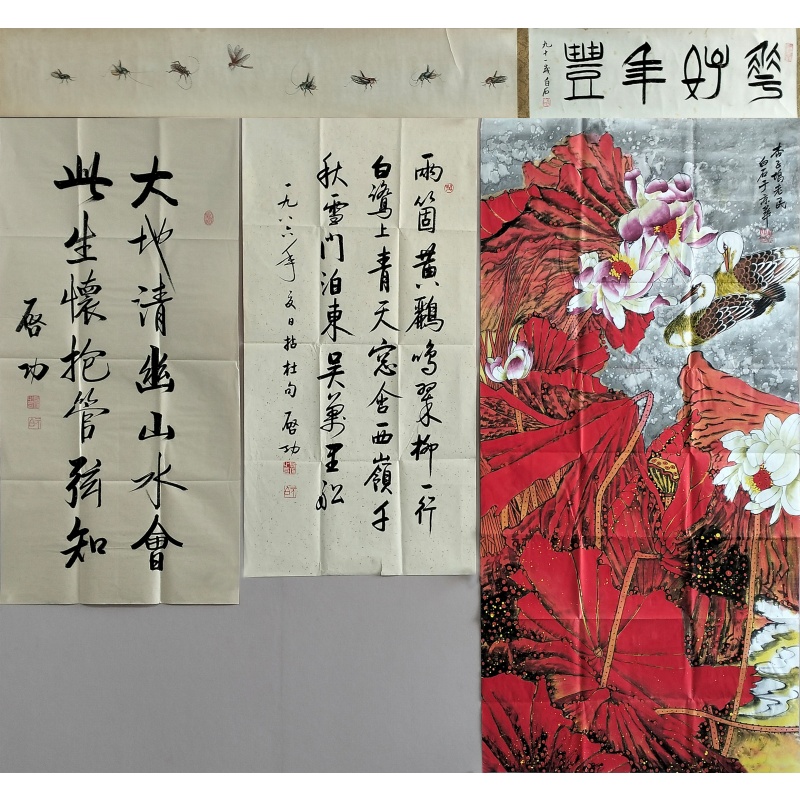 華好年豐
九十一歲白石
大地清幽山水會
此生懷抱管弦知
啓功
兩箇黃鸝鳴翠柳一行
白鷺上青天窓含西嶺千
秋雪門泊東吳萬里船
一九八六年夏日拈杜句 啓功
杏子塢老民
白石于京華